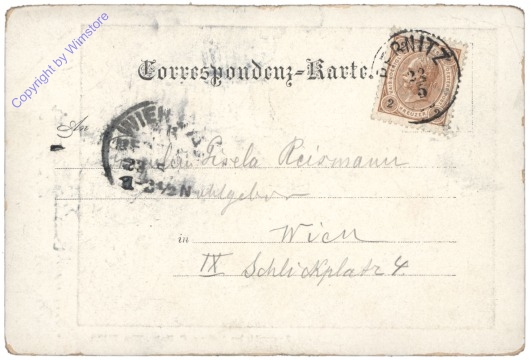 Copyright by Wimstore
Correspondenz-Karte.
PERNITZ
23
5
2 KREUZER 2
WIEN
3½N
An
Gisela Reismann
Wohlgebor
in Wien
IX Schlickplatz 4.